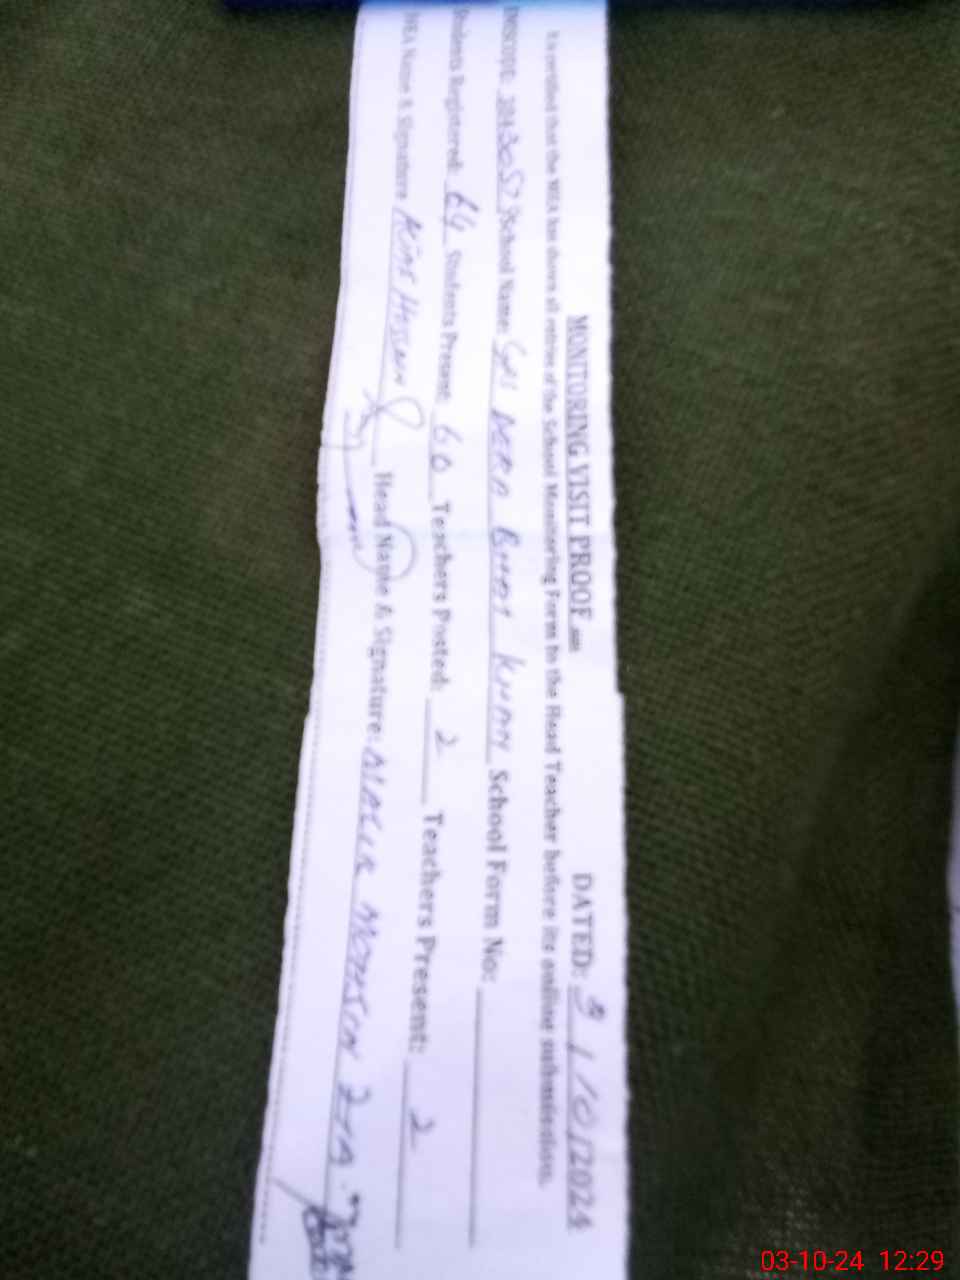 MONITORING VISIT PROOF DATED: 3/10/2024
It is certified that the MEA has shown all entries of the School Monitoring Form to the Head Teacher before its online submission.
School Name: GPS DERA KHAN School Form No:
Students Registered: 64 Students Present: 60 Teachers Posted: 2 Teachers Present: 2
MEA Name & Signature Head Name & Signature: MALIK MOHSIN ZIA
03-10-24 12:29